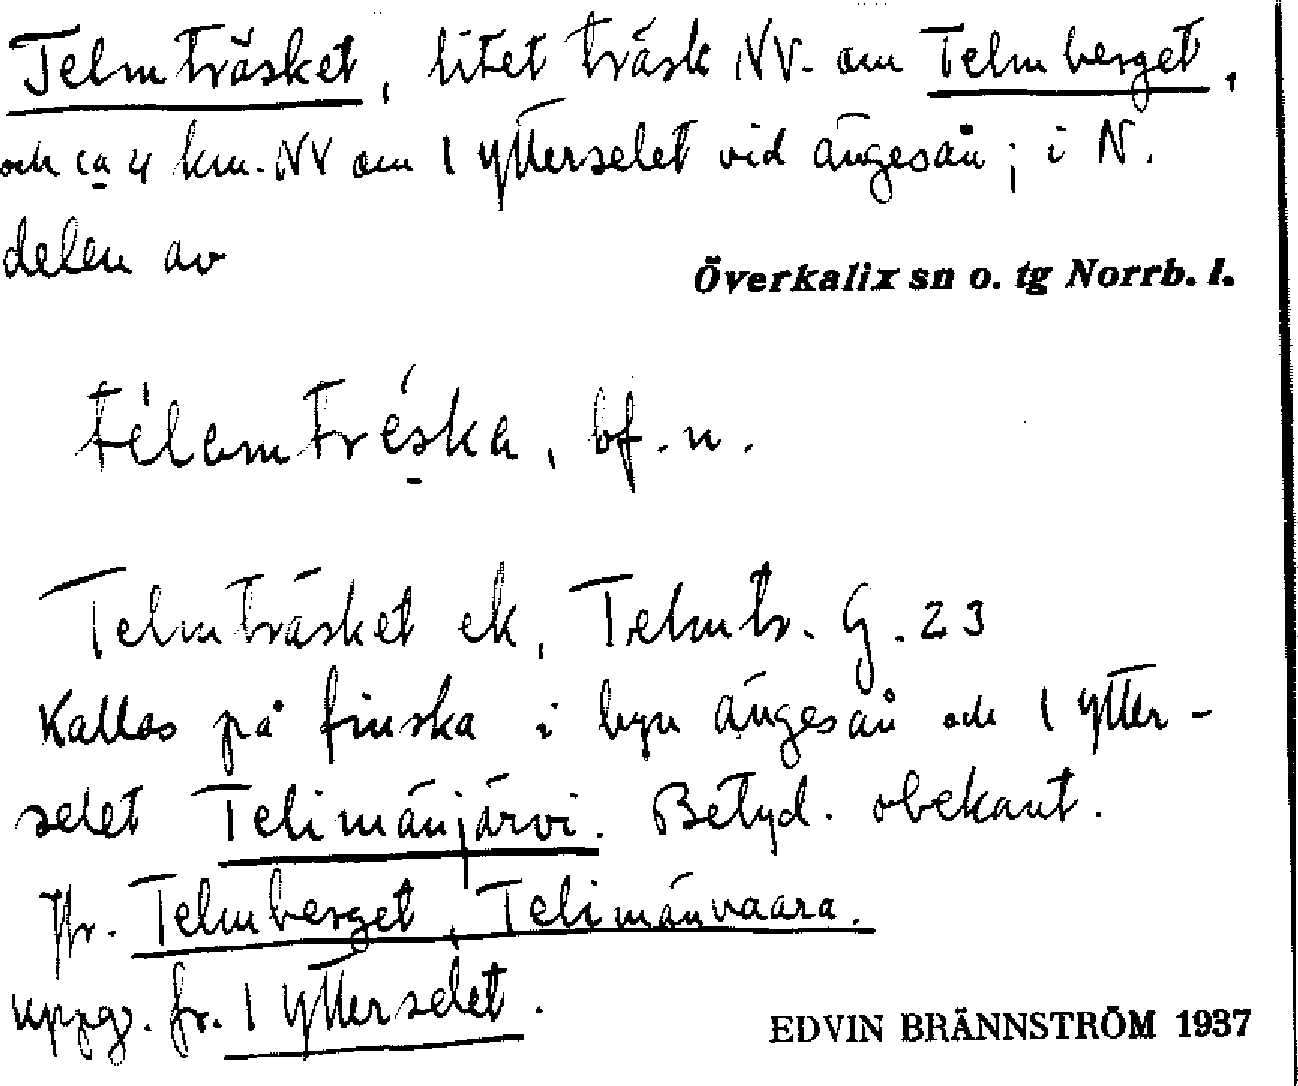 Telmträsket, litet träsk NV. om Telmberget,
och ca 4 km. NV om 1 Ytterselet vid ängesån; i N.
delen av
Överkalix sn o. tg Norrb. l.
télamtréska, bf. n.
Telmträsket ek, Telmtr. G. 23
Kallas på finska i byn ängesån och 1 Ytter-
selet Telimänjärvi. Betyd. obekant.
Jfr. Telmberget, Telimänvaara.
uppg. fr. 1 Ytterselet.
EDVIN BRÄNNSTRÖM 1937